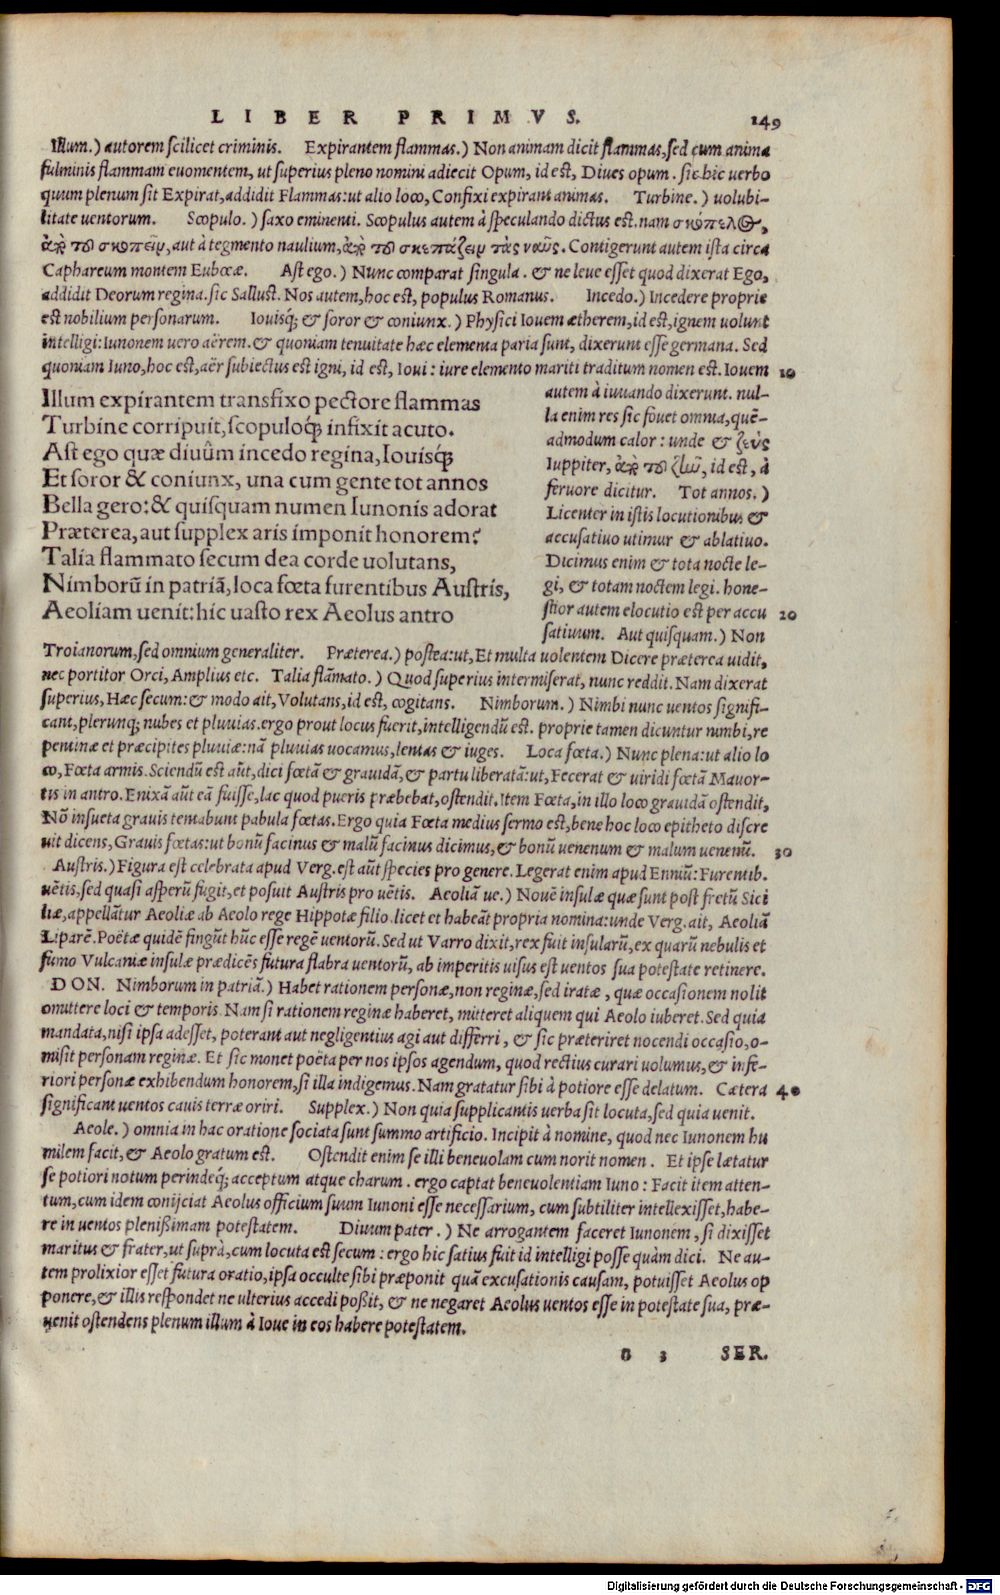 LIBER PRIMVS. 149
Illum.) autorem scilicet criminis. Expirantem flammas.) Non animam dicit flammas, sed cum anima
fulminis flammam euomentem, ut superius pleno nomini adiecit Opum, id est, Diues opum. sic hic uerbo
quum plenum sit Expirat, addidit Flammas: ut alio loco, Confixi expirant animas. Turbine.) uolubi-
litate uentorum. Scopulo.) saxo eminenti. Scopulus autem à speculando dictus est. nam σκόπελος,
ἀπὸ τοῦ σκοπεῖν, aut à tegmento nauium, ἀπὸ τοῦ σκεπάζειν τὰς ναῦς. Contigerunt autem ista circa
Caphareum montem Eubœæ. Ast ego.) Nunc comparat singula. & ne leue esset quod dixerat Ego,
addidit Deorum regina. sic Sallust. Nos autem, hoc est, populus Romanus. Incedo.) Incedere proprie
est nobilium personarum. Iouisq́; & soror & coniunx.) Physici Iouem ætherem, id est, ignem uolunt
intelligi: Iunonem uero aërem. & quoniam tenuitate hæc elementa paria sunt, dixerunt esse germana. Sed
quoniam Iuno, hoc est, aër subiectus est igni, id est, Ioui: iure elemento mariti traditum nomen est. Iouem 10
Illum expirantem transfixo pectore flammas
Turbine corripuit, scopuloq́; infixit acuto.
Ast ego quæ diuûm incedo regina, Iouisq́;
Et soror & coniunx, una cum gente tot annos
Bella gero: & quisquam numen Iunonis adorat
Præterea, aut supplex aris imponit honorem?
Talia flammato secum dea corde uolutans,
Nimborũ in patriã, loca fœta furentibus Austris,
Aeoliam uenit: hic uasto rex Aeolus antro
autem à iuuando dixerunt. nul-
la enim res sic fouet omnia, quẽ-
admodum calor: unde & ζεὺς
Iuppiter, ἀπὸ τοῦ ζῶῦ, id est, à
feruore dicitur. Tot annos.)
Licenter in istis locutionibus &
accusatiuo utimur & ablatiuo.
Dicimus enim & tota nocte le-
gi, & totam noctem legi. hone-
stior autem elocutio est per accu 20
satiuum. Aut quisquam.) Non
Troianorum, sed omnium generaliter. Præterea.) postea: ut, Et multa uolentem Dicere præterea uidit,
nec portitor Orci, Amplius etc. Talia flãmato.) Quod superius intermiserat, nunc reddit. Nam dixerat
superius, Hæc secum: & modo ait, Volutans, id est, cogitans. Nimborum.) Nimbi nunc uentos signifi-
cant, plerunq; nubes et pluuias. ergo prout locus fuerit, intelligendũ est. proprie tamen dicuntur nimbi, re
pentinæ et præcipites pluuiæ: nã pluuias uocamus, lentas & iuges. Loca fœta.) Nunc plena: ut alio lo
co, Fœta armis. Sciendũ est aũt, dici fœtã & grauidã, & partu liberatã: ut, Fecerat & uiridi fœtã Mauor-
tis in antro. Enixã aũt eã fuisse, lac quod pueris præbebat, ostendit. Item Fœta, in illo loco grauidã ostendit,
Nõ insueta grauis tentabunt pabula fœtas. Ergo quia Fœta medius sermo est, bene hoc loco epitheto discre
uit dicens, Grauis fœtas: ut bonũ facinus & malũ facinus dicimus, & bonũ uenenum & malum uenenũ. 30
Austris.) Figura est celebrata apud Verg. est aũt species pro genere. Legerat enim apud Enniũ: Furentib.
uẽtis, sed quasi asperũ fugit, et posuit Austris pro uẽtis. Aeoliã ue.) Nouẽ insulæ quæ sunt post fretũ Sici
liæ, appellãtur Aeoliæ ab Aeolo rege Hippotæ filio. licet et habeãt propria nomina: unde Verg. ait, Aeoliã
Liparẽ. Poëtæ quidẽ fingũt hũc esse regẽ uentorũ. Sed ut Varro dixit, rex fuit insularũ, ex quarũ nebulis et
fumo Vulcaniæ insulæ prædicẽs futura flabra uentorũ, ab imperitis uisus est uentos sua potestate retinere.
DON. Nimborum in patriã.) Habet rationem personæ, non reginæ, sed iratæ, quæ occasionem nolit
omittere loci & temporis. Nam si rationem reginæ haberet, mitteret aliquem qui Aeolo iuberet. Sed quia
mandata, nisi ipsa adesset, poterant aut negligentius agi aut differri, & sic præteriret nocendi occasio, o-
misit personam reginæ. Et sic monet poëta per nos ipsos agendum, quod rectius curari uolumus, & infe-
riori personæ exhibendum honorem, si illa indigemus. Nam gratatur sibi à potiore esse delatum. Cætera 40
significant uentos cauis terræ oriri. Supplex.) Non quia supplicantis uerba sit locuta, sed quia uenit.
Aeole.) omnia in hac oratione sociata sunt summo artificio. Incipit à nomine, quod nec Iunonem hu
milem facit, & Aeolo gratum est. Ostendit enim se illi beneuolam cum norit nomen. Et ipse lætatur
se potiori notum perindeq́; acceptum atque charum. ergo captat beneuolentiam Iuno: Facit item atten-
tum, cum idem conijciat Aeolus officium suum Iunoni esse necessarium, cum subtiliter intellexisset, habe-
re in uentos plenißimam potestatem. Diuum pater.) Ne arrogantem faceret Iunonem, si dixisset
maritus & frater, ut suprà, cum locuta est secum: ergo hic satius fuit id intelligi posse quàm dici. Ne au-
tem prolixior esset futura oratio, ipsa occulte sibi præponit quã excusationis causam, potuisset Aeolus op
ponere, & illis respondet ne ulterius accedi poßit, & ne negaret Aeolus uentos esse in potestate sua, præ-
uenit ostendens plenum illum à Ioue in eos habere potestatem.
n 3 SER.
Digitalisierung gefördert durch die Deutsche Forschungsgemeinschaft - DFG